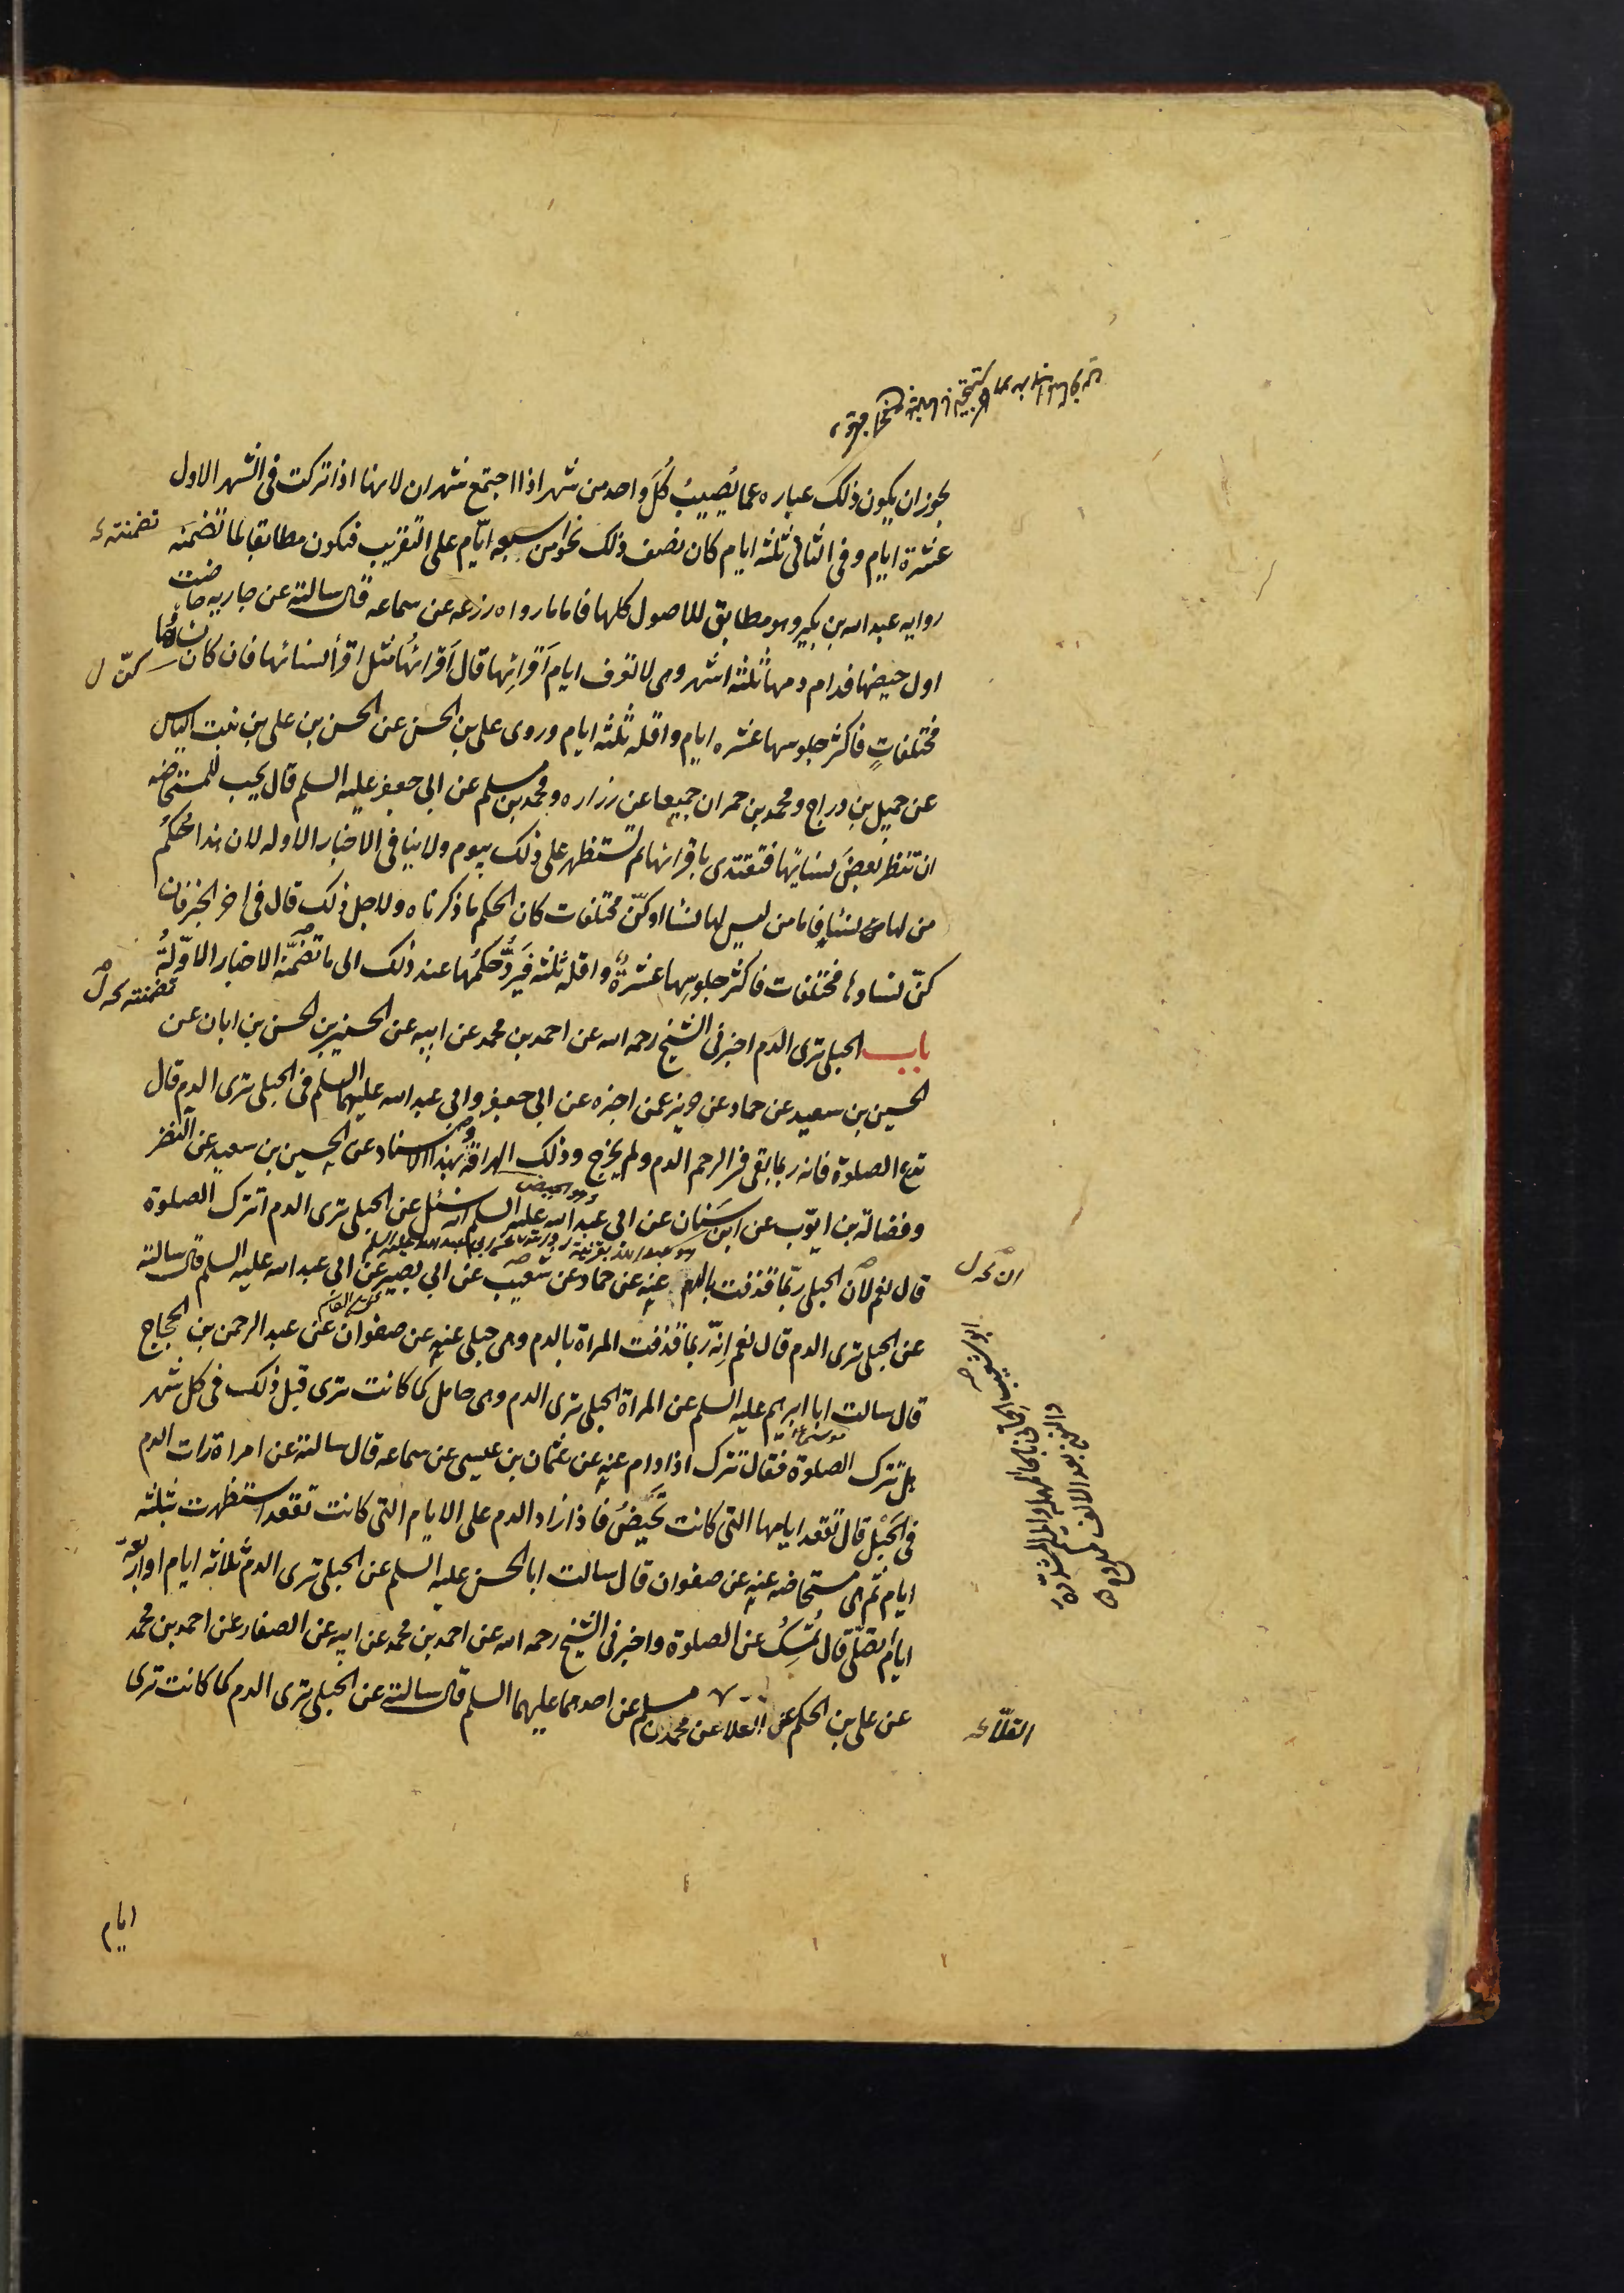 يجوز ان يكون ذلك عباره عما يُصيبُ كُلّ واحد من شهر اذا اجتمع شهران لانها اذا تركت فى الشهر الاول
عشرة ايام وفى الثانى ثلثه ايام كان نصف ذلك نحوا من سبعه ايّام على التقريب فتكون مطابقا لما تضمَنَه
تضمنته
روايه عبد الله بن بكير وهو مطابق للاصول كلها فاما ما رواه زرعه عن سماعه قال سالته عن جاريه حاضت
اول حيضها فدام دمها ثلثة اشهر وهى لا تعرف ايام اَقرائِها قال اَقرائُها مثل اقرأ نسائها فان كان نساؤُها
كنّ ل
مختلفاتٍ فاكثر جلوسها عشره ايام واقله ثلثه ايام وروى على بن الحسن عن الحسن بن على بن بنت الياس
عن جميل بن دراج ومحمد بن حمران جميعا عن زراره ومحمد بن مسلم عن ابى جعفر عليه السلم قال يجب للمستحاضه
ان تنظر بعضَ نسائِها فتقتدى باقرائها ثم تستظهر على ذلك بيوم ولا ينافى الاخبار الاوله لان هذا حُكمُ
من لها نساءٍ فاما من ليس لها نسْاَ او كنّ مختلفات كان الحكم ما ذكرناه ولاجل ذلك قال فى اخر الخبر فان
كنّ نساوها مختلفات فاكثر جلوسِها عشرةٌ واقله ثلثه فَيَردُّ حُكمُها عند ذلك الى ما تضمَّنَه الاخبار الاوَّلةُ
تضمنته
باب الحبلى ترى الدم اخبرنى الشيخ رحمه الله عن احمد بن محمد عن ابيه عن الحسين بن الحسن بن ابان عن
الحسين بن سعيد عن حماد عن حريز عمن اخبره عن ابى جعفر وابى عبد الله عليهما السلم فى الحبلى ترى الدم قال
تدع الصلوة فانه ربما بقى فى الرحم الدم ولم يخرج وذلك الهراقة وبهذا الاسناد عن الحسين بن سعيد عن النضر
وفضالة بن ايّوب عن ابن سَنان عن ابى عبد الله عليه السلم انه سُئل عن الحبلى ترى الدم اتترك الصلوة
قال نعم لانّ الحبلى ربّما قذفت بالدم عنه عن حماد عن شعيب عن ابى بصير عن ابى عبد الله عليه السلم قال سالته
عن الحبلى ترى الدم قال نعم اِنّه ربما قذفت المراة بالدم وهى حبلى عنه عن صفوان عن عبد الرحمن بن الحجاج
قال سالت ابا ابرهيم عليه السلم عن المراة الحبلى ترى الدم وهى حامل كما كانت ترى قبل ذلك فى كل شهر
هل تترك الصلوة فقال تترك اذا دام عنه عن عثمان بن عيسى عن سماعه قال سالته عن امراة رات الدم
فى الحَبْل قال تقعد ايامها التى كانت تَحيَضُ فاذا زاد الدم على الايام التى كانت تقعد استظهرت بثلثه
ايام ثم هى مستحاضه عنه عن صفوان قال سالت ابا الحسن عليه السلم عن الحبلى ترى الدم ثلاثه ايام او اربعة
ايام تصلّى قال تُمْسِكُ عن الصلوة واخبرنى الشيخ رحمه الله عن احمد بن محمد عن ابيه عن الصفار عن احمد بن محمد
عن على بن الحكم عن العلا عن محمد بن مسلم عن احدهما عليهما السلم قال سالته عن الحبلى ترى الدم كما كانت ترى
ايام